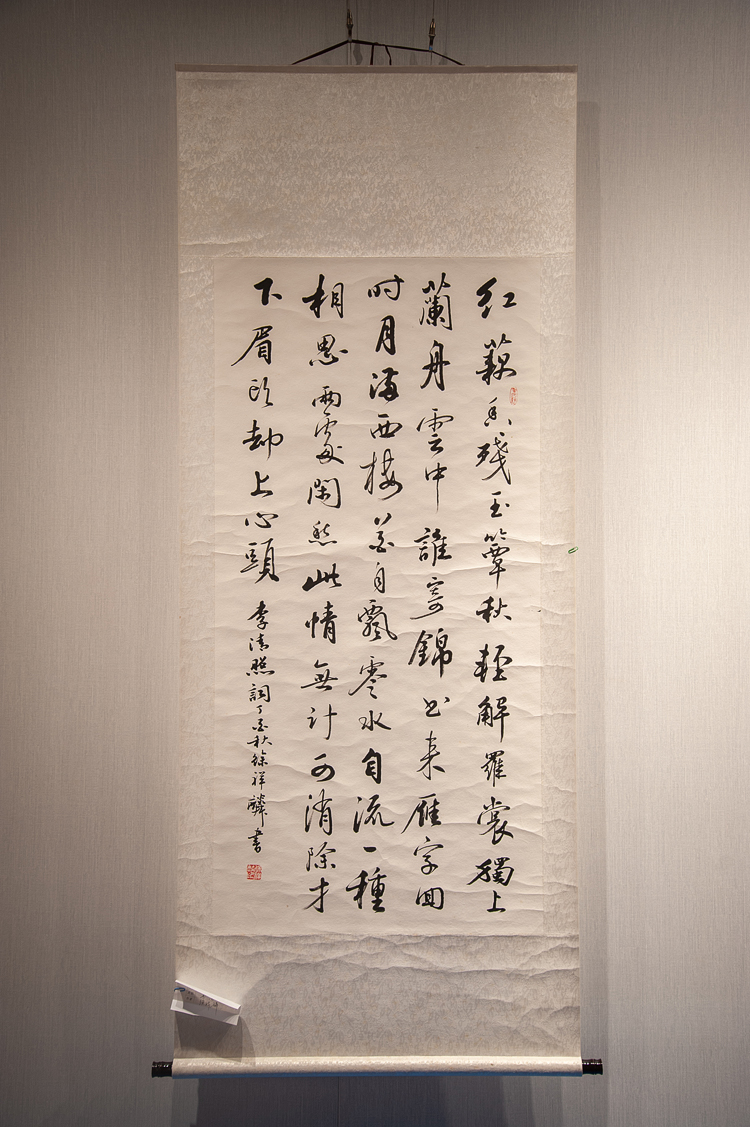 紅藕香殘玉簟秋輕解羅裳獨上
蘭舟雲中誰寄錦书来雁字回
时月滿西楼花自飄零水自流一種
相思兩處閑愁此情無計可消除才
下眉头却上心頭
李清照詞丁酉秋徐祥麟書